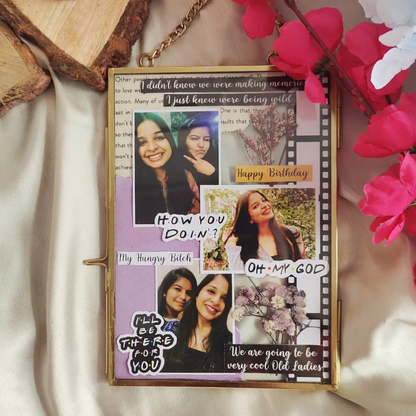 Other peo
I didn't know we were making memories
to lose we
action. Many of us
I just knew were being wild
and
don't b
One is that
so the
results that
was
achieve
HOW YOU
DOIN'?
Happy Birthday
My Hungry Bitch
OH·MY GOD
I'LL
BE
THERE
FOR
YOU
We are going to be
very cool Old Ladies